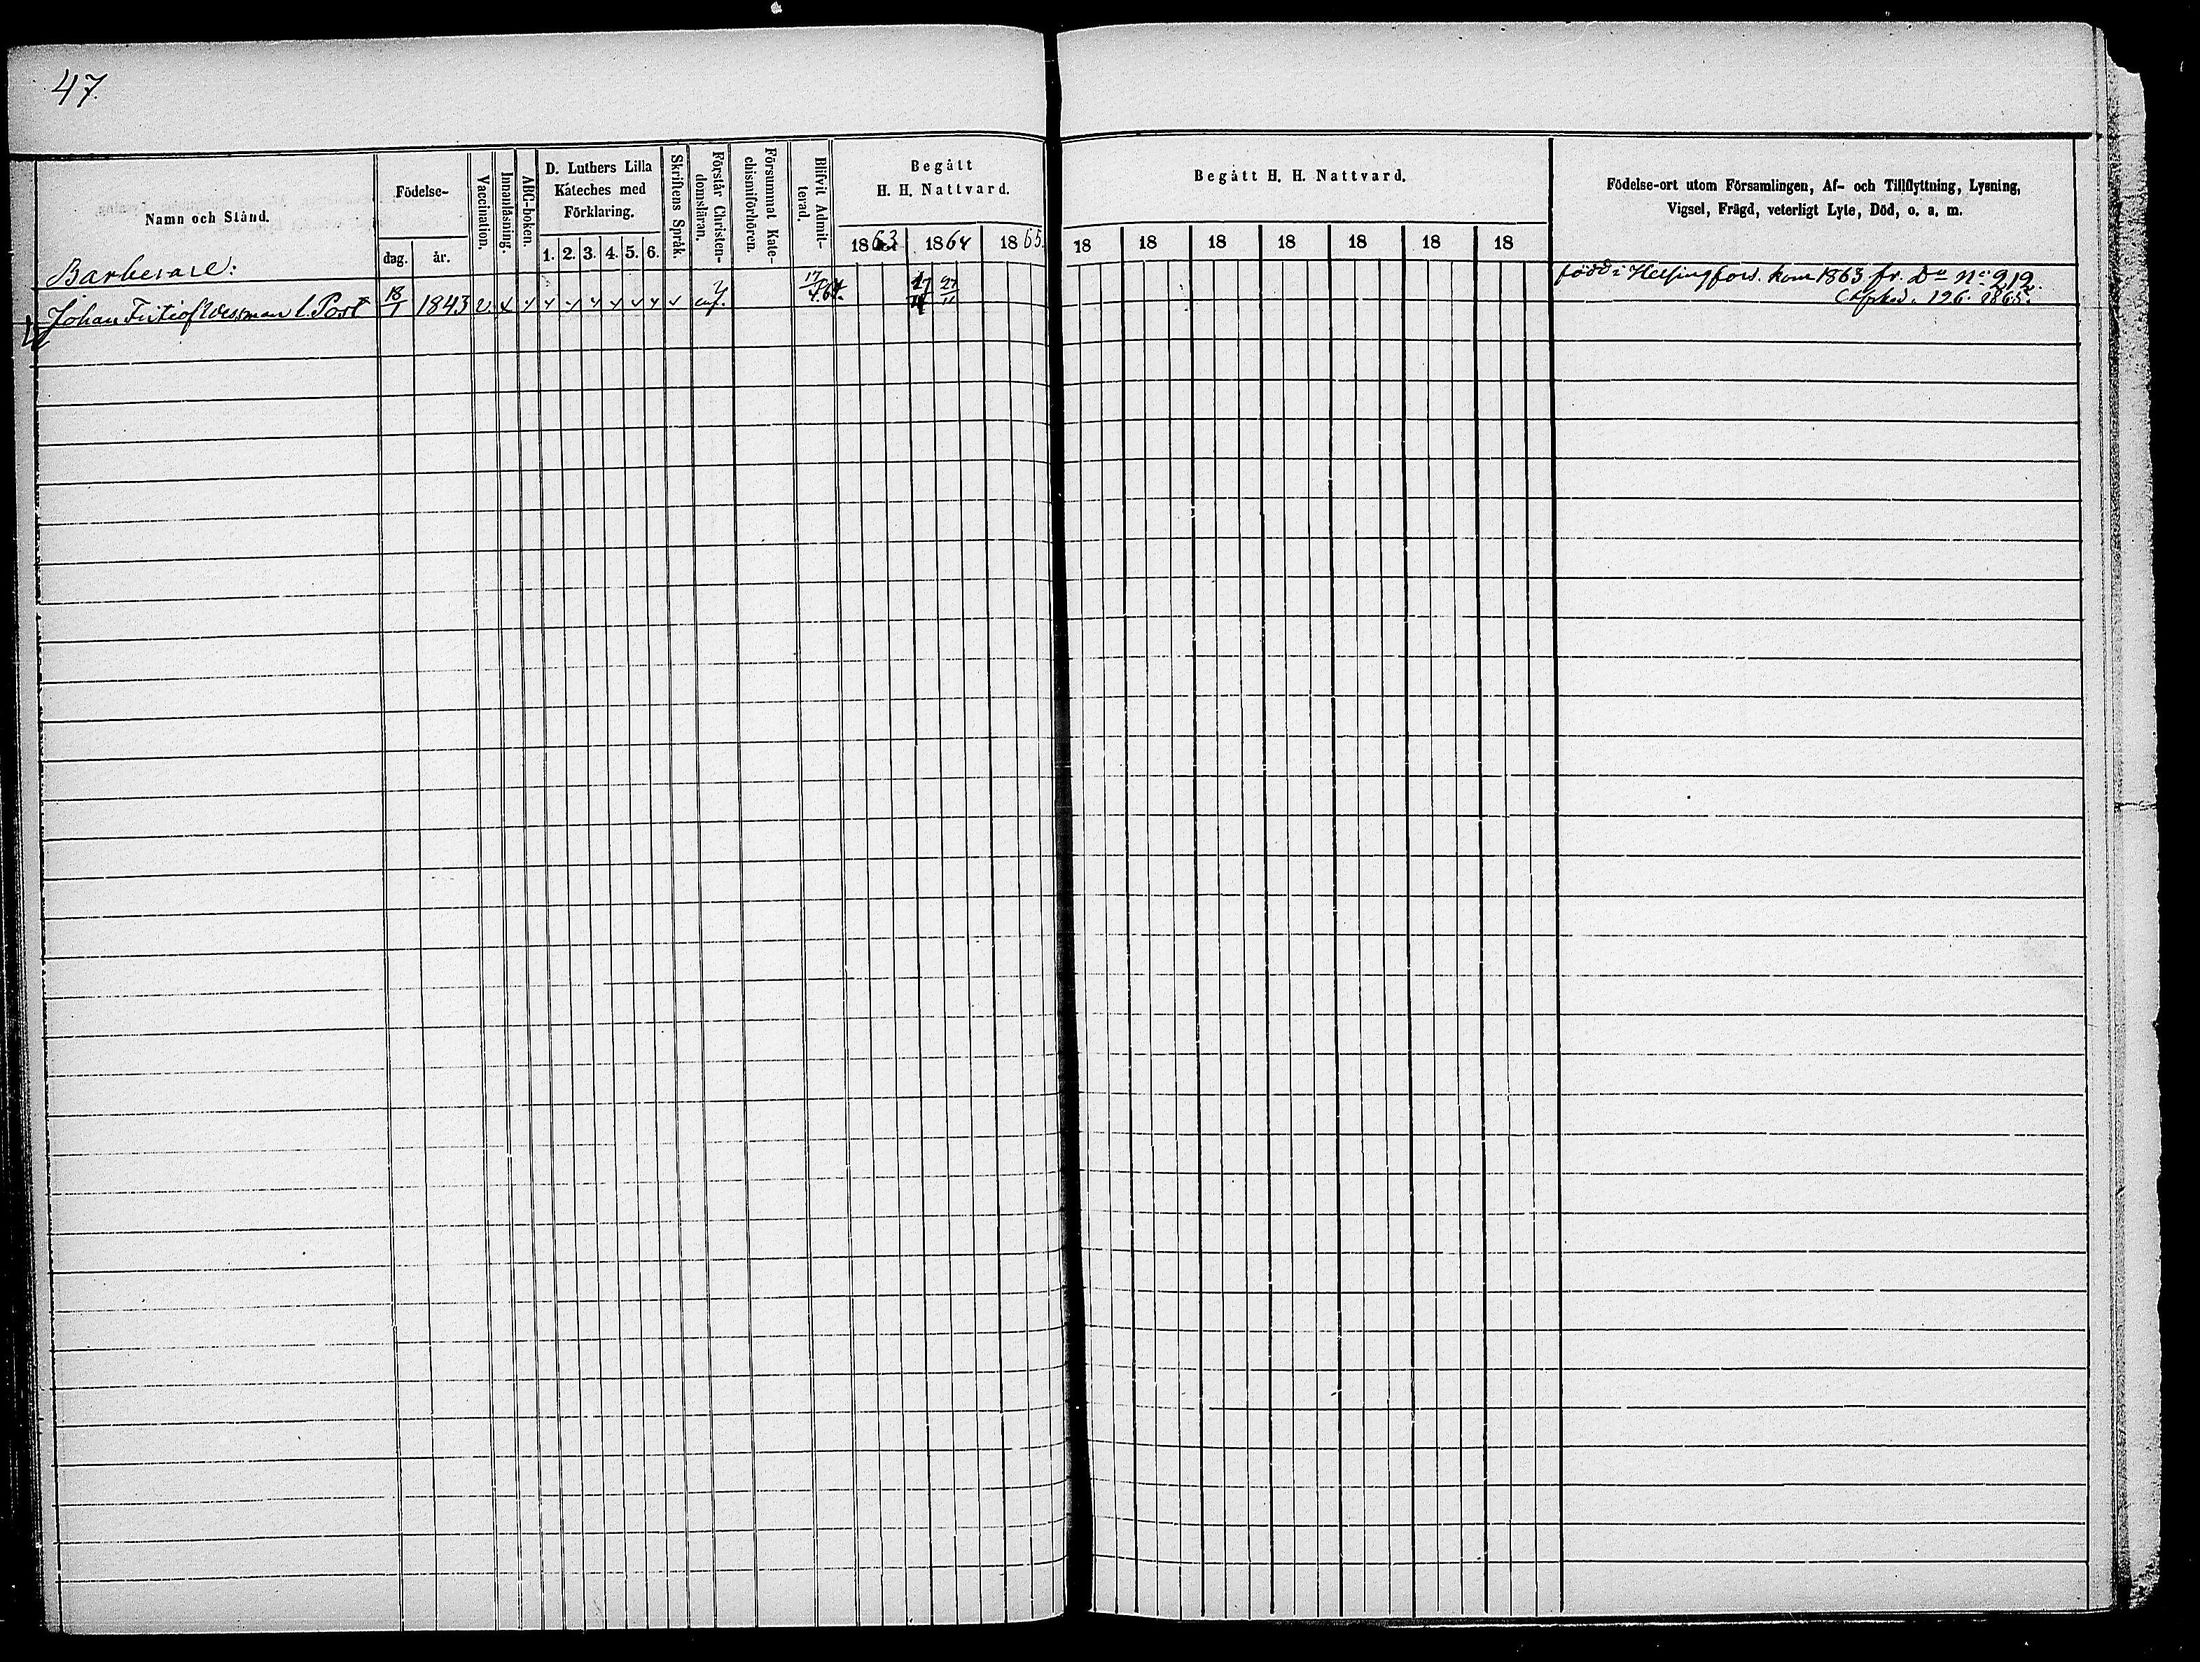 47.
Namn och Stånd.
Födelse-
dag. år.
Vaccination.
Innanläsning.
ABC-boken.
D. Luthers Lilla
Kateches med
Förklaring.
1. 2. 3. 4. 5. 6.
Skriftens Språk.
Förstår Christen-
domsläran.
Försummat Kate-
chismiförhören.
Blifvit Admit-
terad.
Begått
H. H. Nattvard.
1863 1864 1865.
Begått H. H. Nattvard.
18 18 18 18 18 18 18
Födelse-ort utom Församlingen, Af- och Tillflyttning, Lysning,
Vigsel, Frägd, veterligt Lyte, Död, o. a. m.
Barberare:
född i Helsingfors. kom 1863 fr. Do No 212.
Johan Fritiof Wessman l. Post 18/1 1843 v. 17/4 64. 27/11
126. 1865.